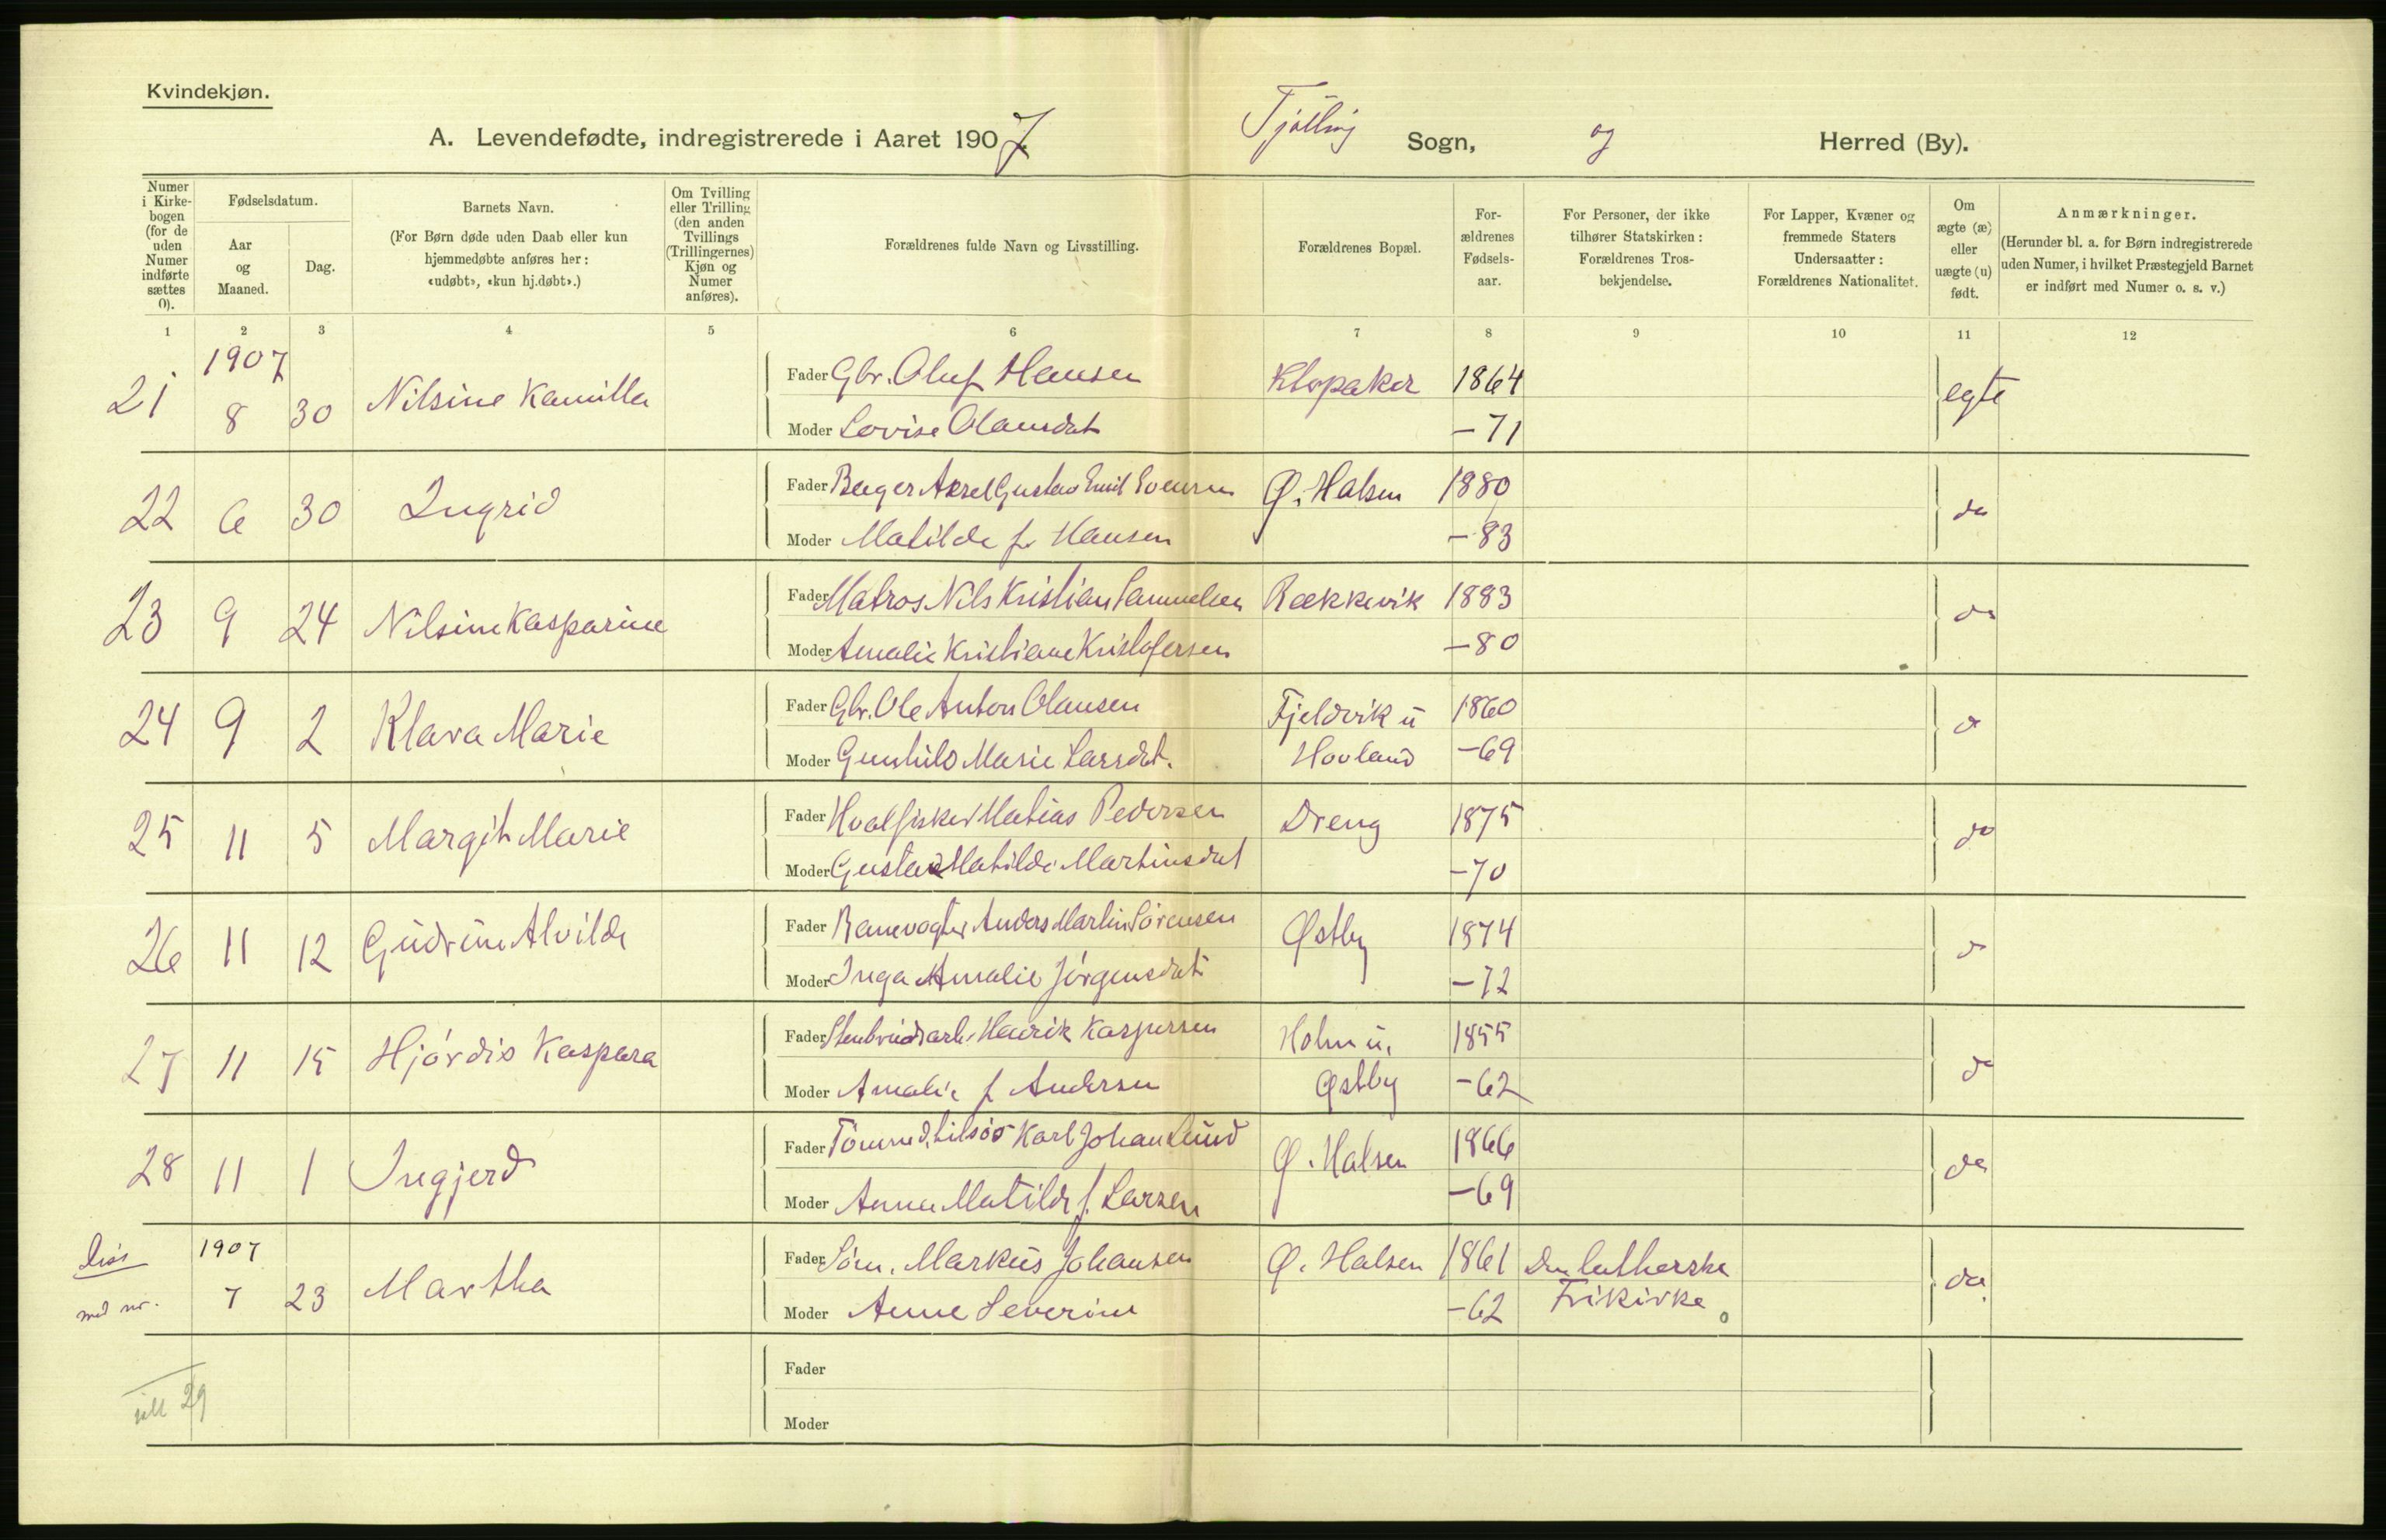 Kvindekjøn.
A. Levendefødte, indregistrerede i Aaret 1907. Tjølling Sogn, og Herred (By).
Numer i Kirkebogen (for de uden Numer indførte sættes 0).
Fødselsdatum.
Aar og Maaned.
Dag.
Barnets Navn.
(For Børn døde uden Daab eller kun hjemmedøbte anføres her: «udøbt», «kun hj.døbt».)
Om Tvilling eller Trilling (den anden Tvillings (Trillingernes) Kjøn og Numer anføres).
Forældrenes fulde Navn og Livsstilling.
Forældrenes Bopæl.
Forældrenes Fødselsaar.
For Personer, der ikke tilhører Statskirken: Forældrenes Trosbekjendelse.
For Lapper, Kvæner og fremmede Staters Undersaatter: Forældrenes Nationalitet.
Om ægte (æ) eller uægte (u) født.
Anmærkninger.
(Herunder bl. a. for Børn indregistrerede uden Numer, i hvilket Præstegjeld Barnet er indført med Numer o. s. v.)
1 2 3 4 5 6 7 8 9 10 11 12
1907
21 8 30 Nilsine Kamilla Fader Gbr. Oluf Hansen Klopaker 1864 egte
Moder Lovise Olausdat -71
22 6 30 Ingrid Fader Axel Gustav Emil Ø. Halsen 1880 do
Moder Matilde f. Hansen -83
23 9 24 Nilsine Kasparine Fader Matros Nils Kristian Samuelsen Rækkevik 1883 do
Moder Amalie Kristiane Kristofersen -80
24 9 2 Klara Marie Fader Gbr. Ole Anton Olausen Fjeldvik u 1860 do
Moder Gunhild Marie Larsdat. Hovland -69
25 11 5 Margit Marie Fader Hvalfisker Matias Pedersen Dreng 1875 do
Moder Gustava Matilde Martinsdat -70
26 11 12 Gudrun Alvilde Fader Banevogter Anders Martin Sørensen Østby 1874 do
Moder Inga Amalie Jørgensdat -72
27 11 15 Hjørdis Kaspara Fader Stenbrudsarb. Henrik Kaspersen Holm u. 1855 do
Moder Amalie f Andersen Østby -62
28 11 1 Ingjerd Fader Tømmerm. Karl Johan Lund Ø. Halsen 1866 do
Moder Anna Matilde f. Larsen -69
Diss 1907
med nr. 7 23 Martha Fader Søm. Markus Johansen Ø. Halsen 1861 Den lutherske do.
Moder Anne Severine -62 Frikirke
Fader
ialt 29
Moder